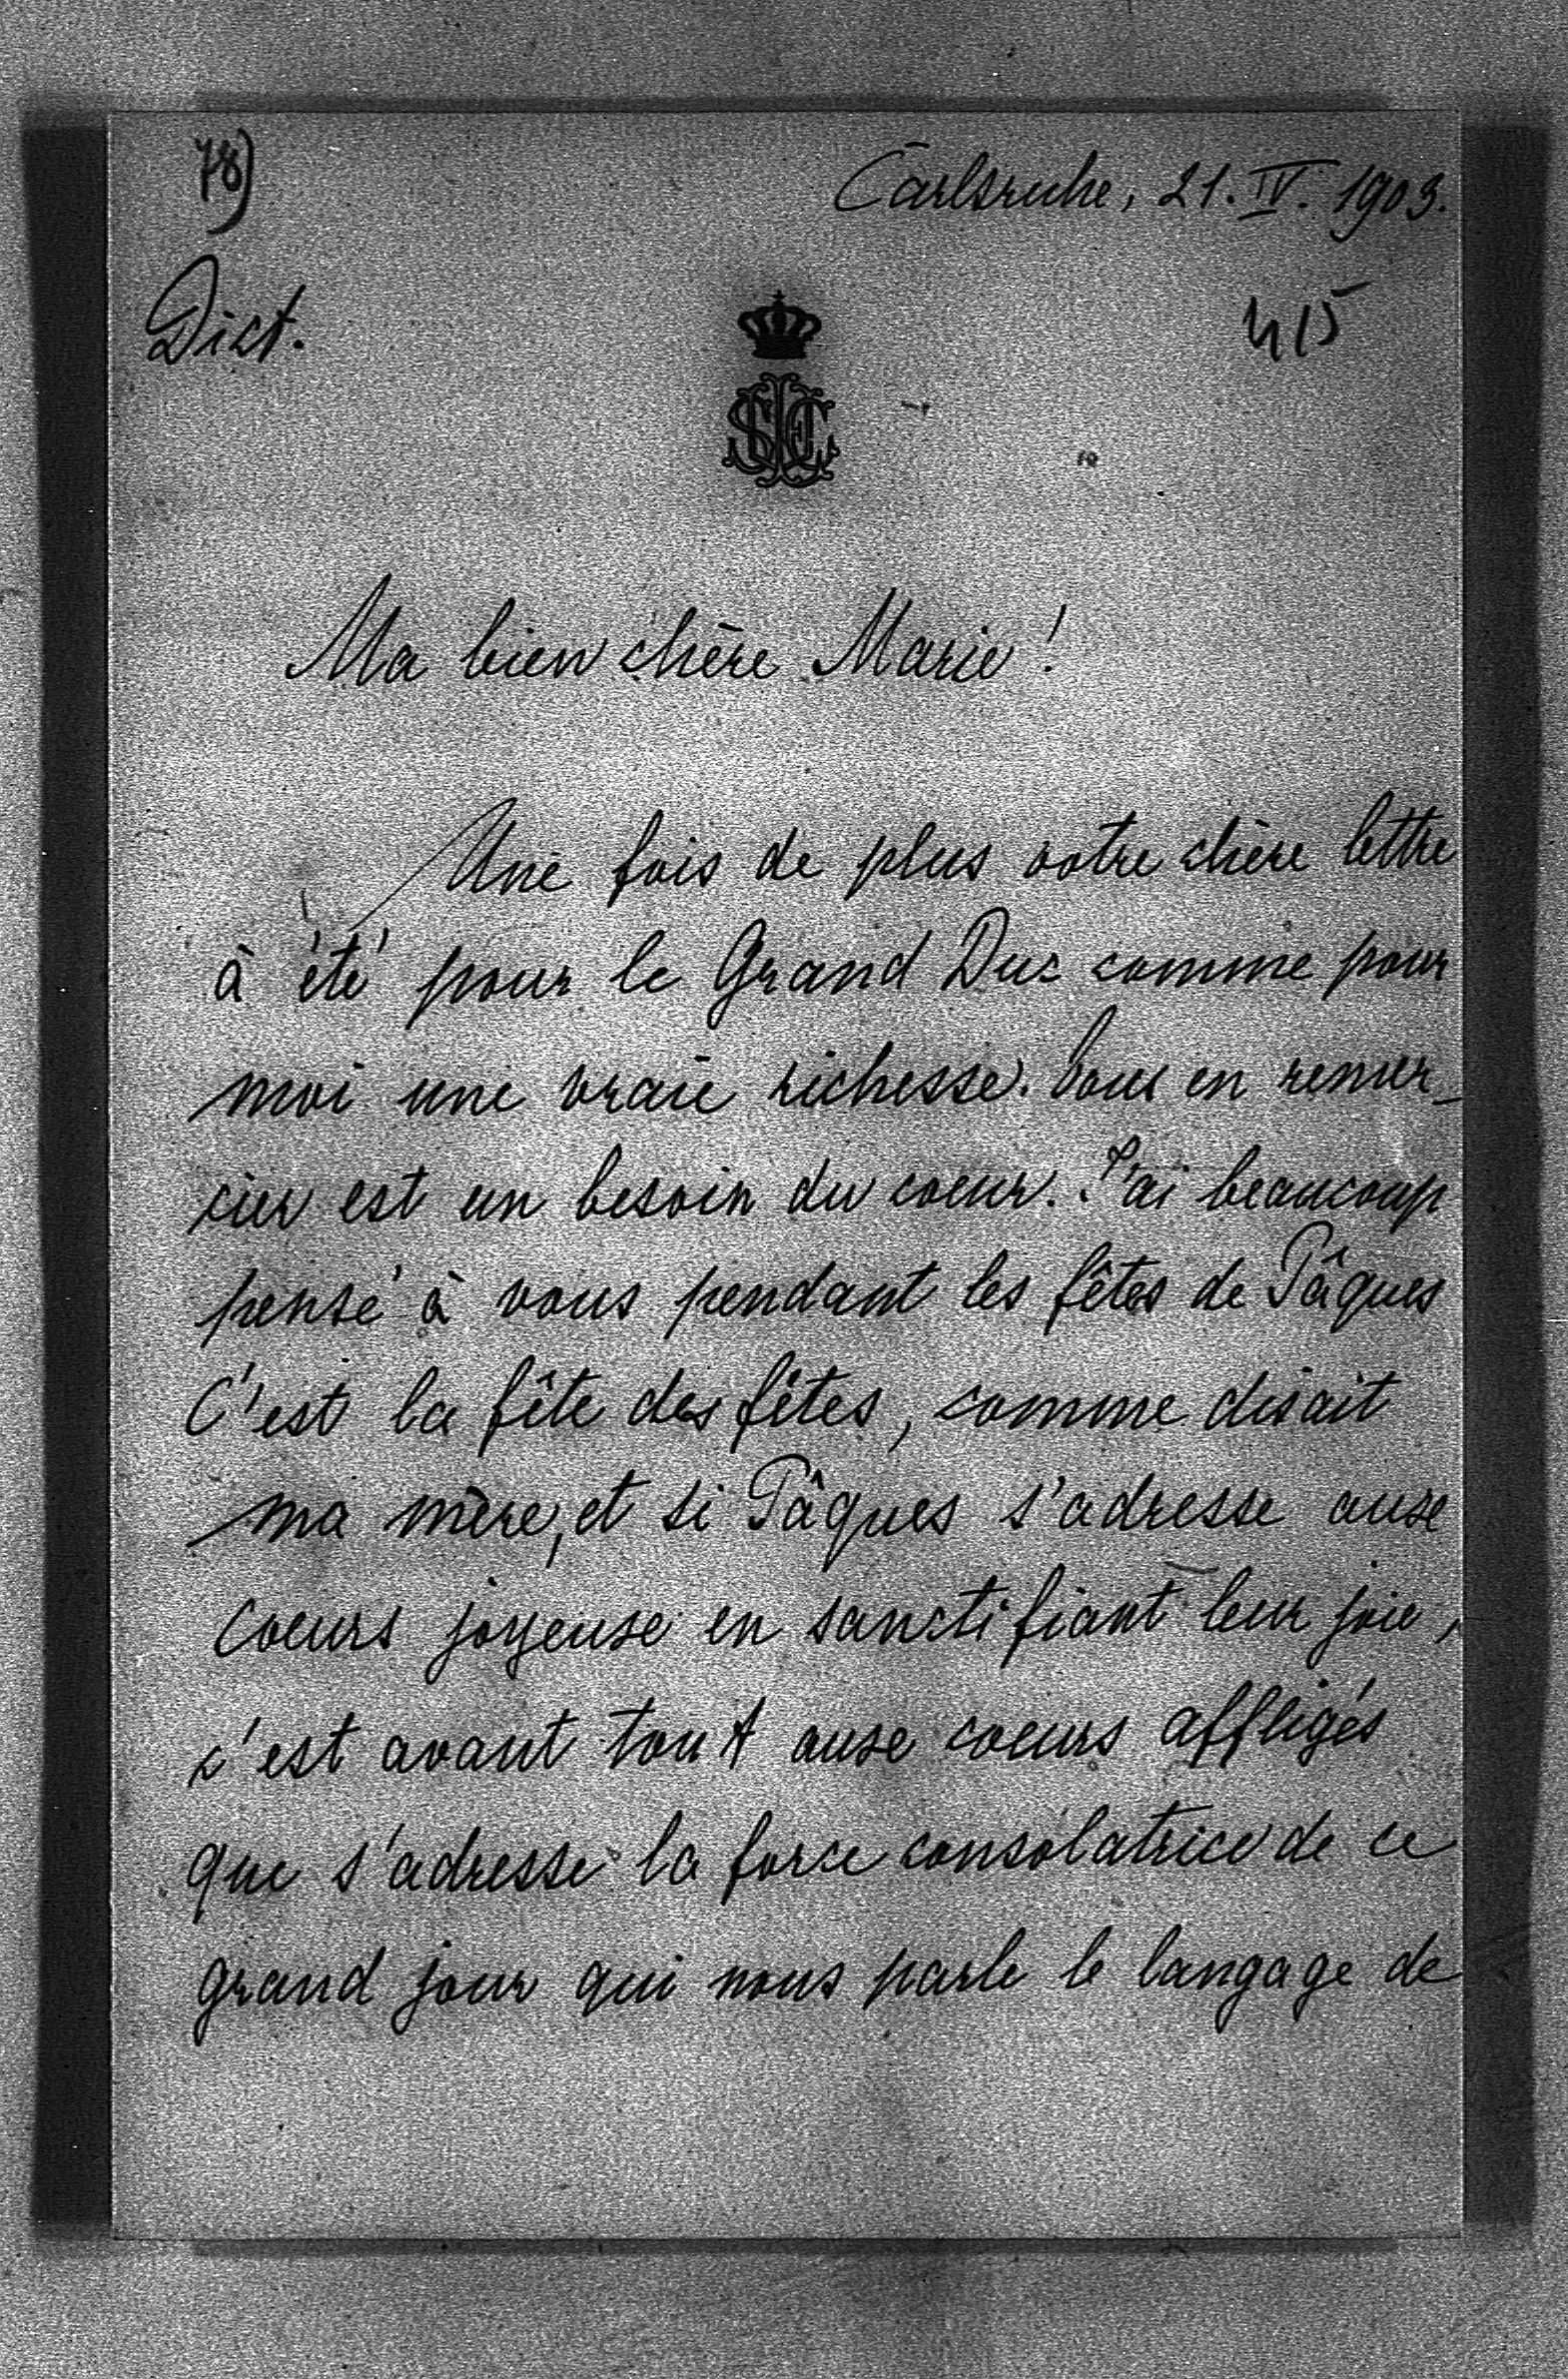 78)
Carlsruhe, 21. IV. 1903.
Dict.
415
Ma bien chère Marie!
Une fois de plus votre chère lettre
à été pour le Grand Duc comme pour
moi une vraie richesse. Vous en remer-
cier est un besoin du coeur. J'ai beaucoup
pensé à vous pendant les fêtes de Pâques
C'est la fête des fêtes, comme disait
ma mère, et si Pâques s'adresse aux
coeurs joyeux en sanctifiant leur joie,
c'est avant tout aux coeurs affligés
que s'adresse la force consolatrice de ce
grand jour qui nous parle le langage de